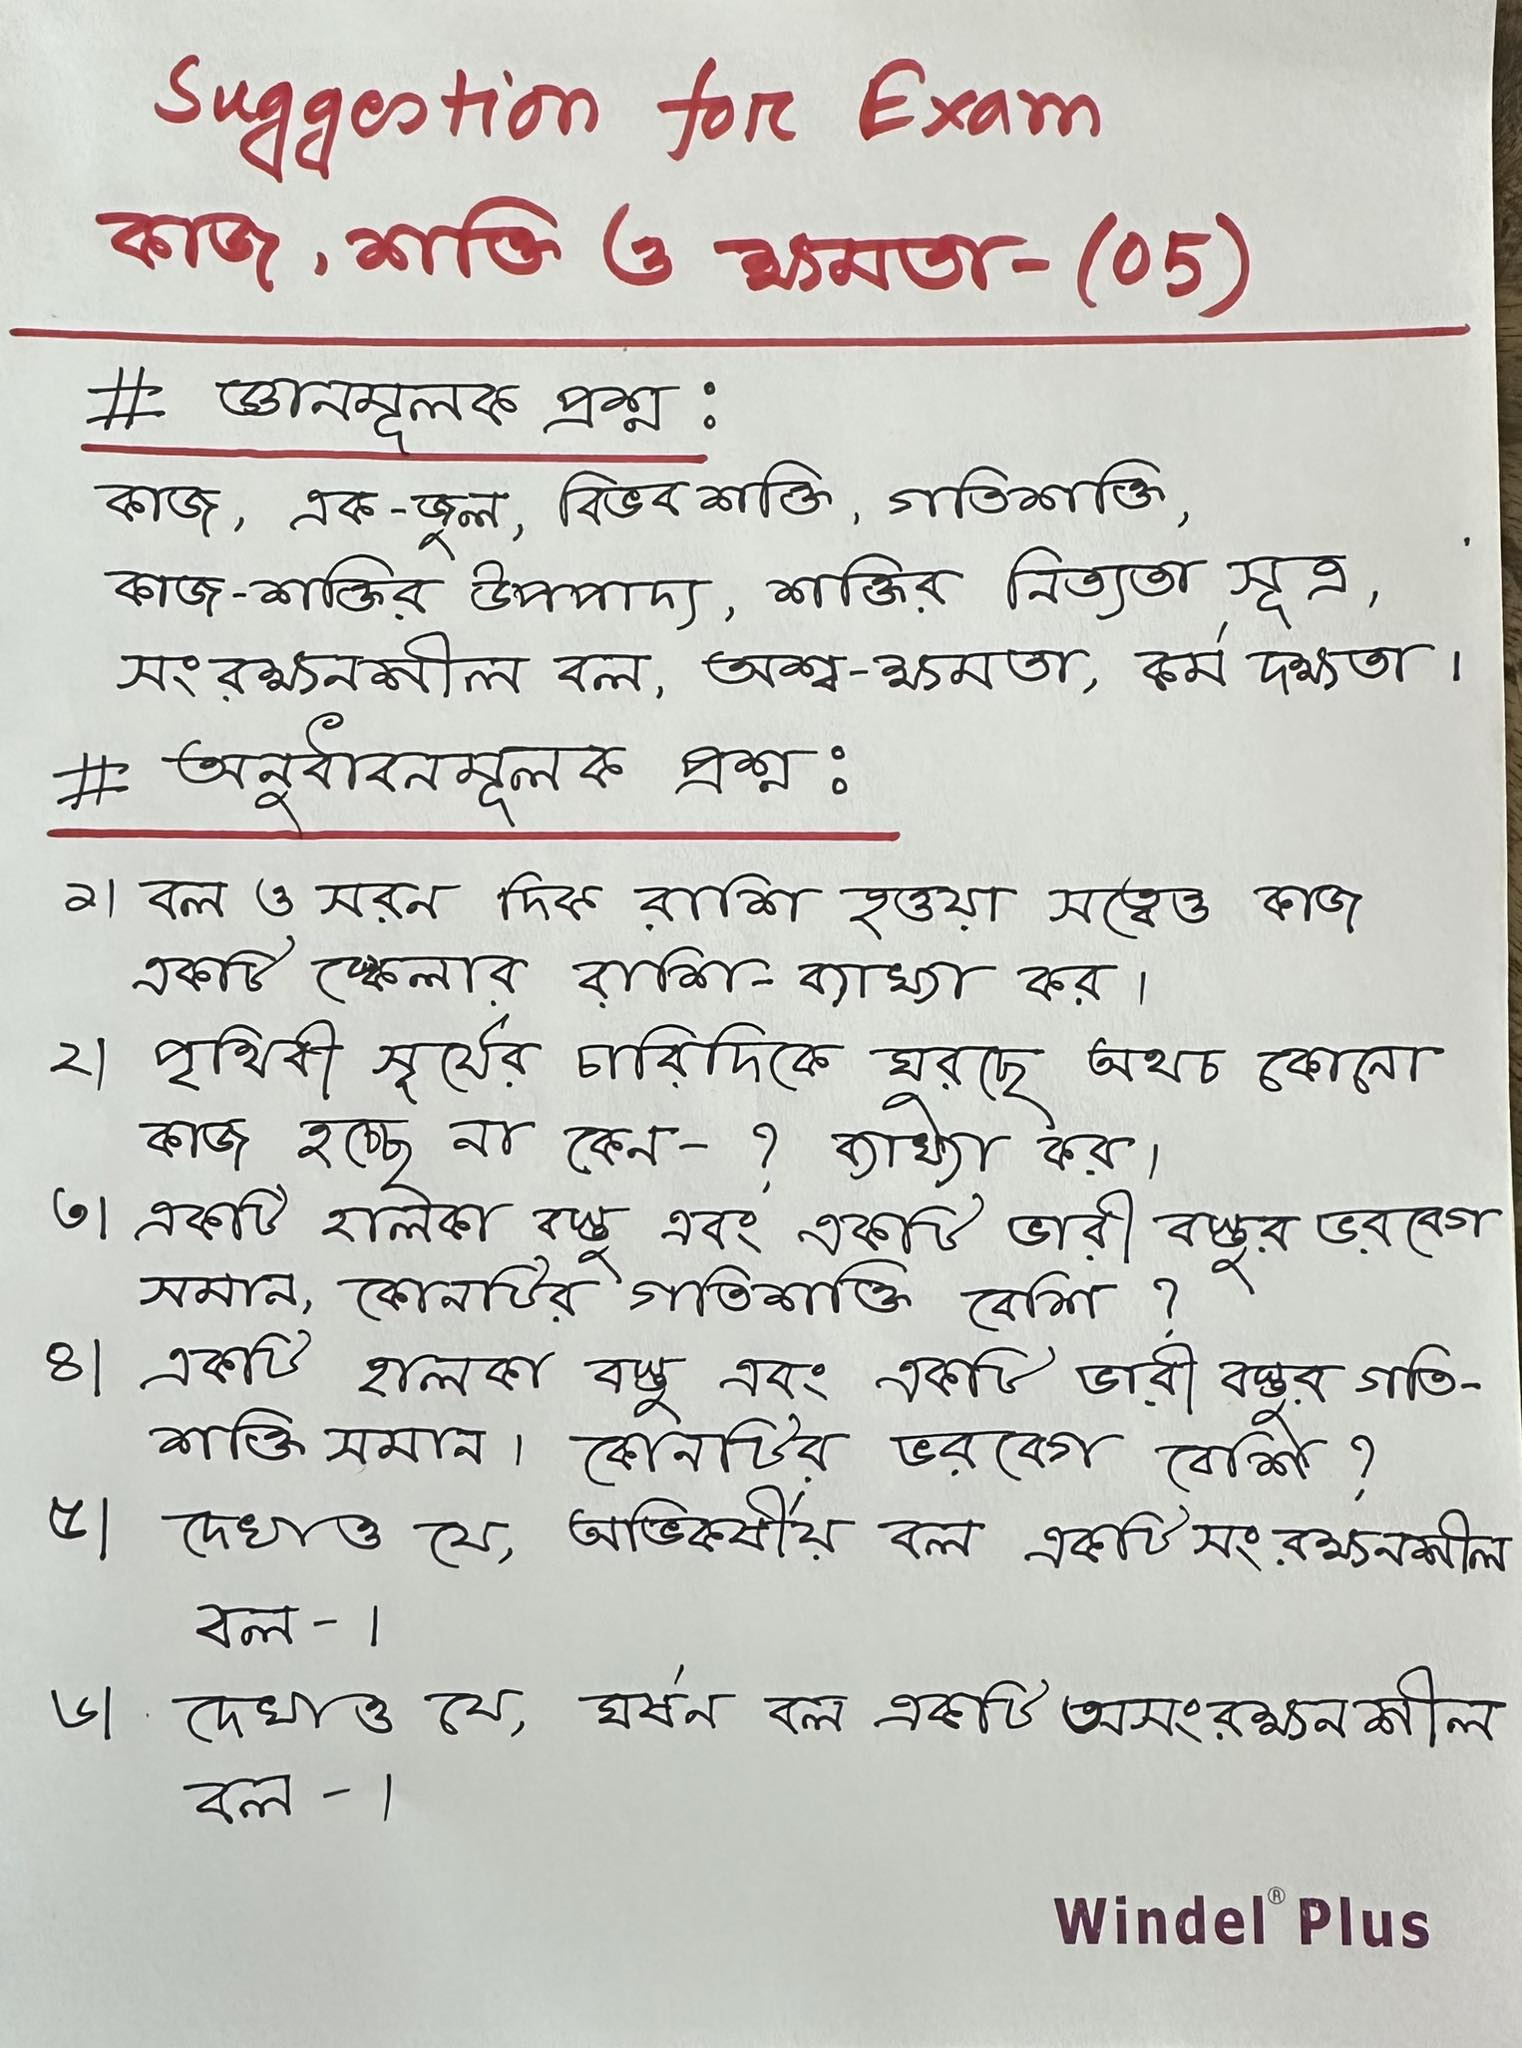 Suggestion for Exam
কাজ, শক্তি ও ক্ষমতা-(05)
# জ্ঞানমূলক প্রশ্ন:
কাজ, এক-জুল, বিভবশক্তি, গতিশক্তি,
কাজ-শক্তির উপপাদ্য, শক্তির নিত্যতা সূত্র,
সংরক্ষনশীল বল, অশ্ব-ক্ষমতা, কর্ম দক্ষতা।
# অনুধাবনমূলক প্রশ্ন:
১। বল ও সরন দিক রাশি হওয়া সত্বেও কাজ
একটি স্কেলার রাশি-ব্যাখ্যা কর।
২। পৃথিবী সূর্যের চারিদিকে ঘুরছে অথচ কোনো
কাজ হচ্ছে না কেন-? ব্যাখ্যা কর।
৩। একটি হালকা বস্তু এবং একটি ভারী বস্তুর ভরবেগ
সমান, কোনটির গতিশক্তি বেশি?
৪। একটি হালকা বস্তু এবং একটি ভারী বস্তুর গতি-
শক্তি সমান। কোনটির ভরবেগ বেশি?
৫। দেখাও যে, অভিকর্ষীয় বল একটি সংরক্ষনশীল
বল-।
৬। দেখাও যে, ঘর্ষন বল একটি অসংরক্ষনশীল
বল-।
Windel® Plus